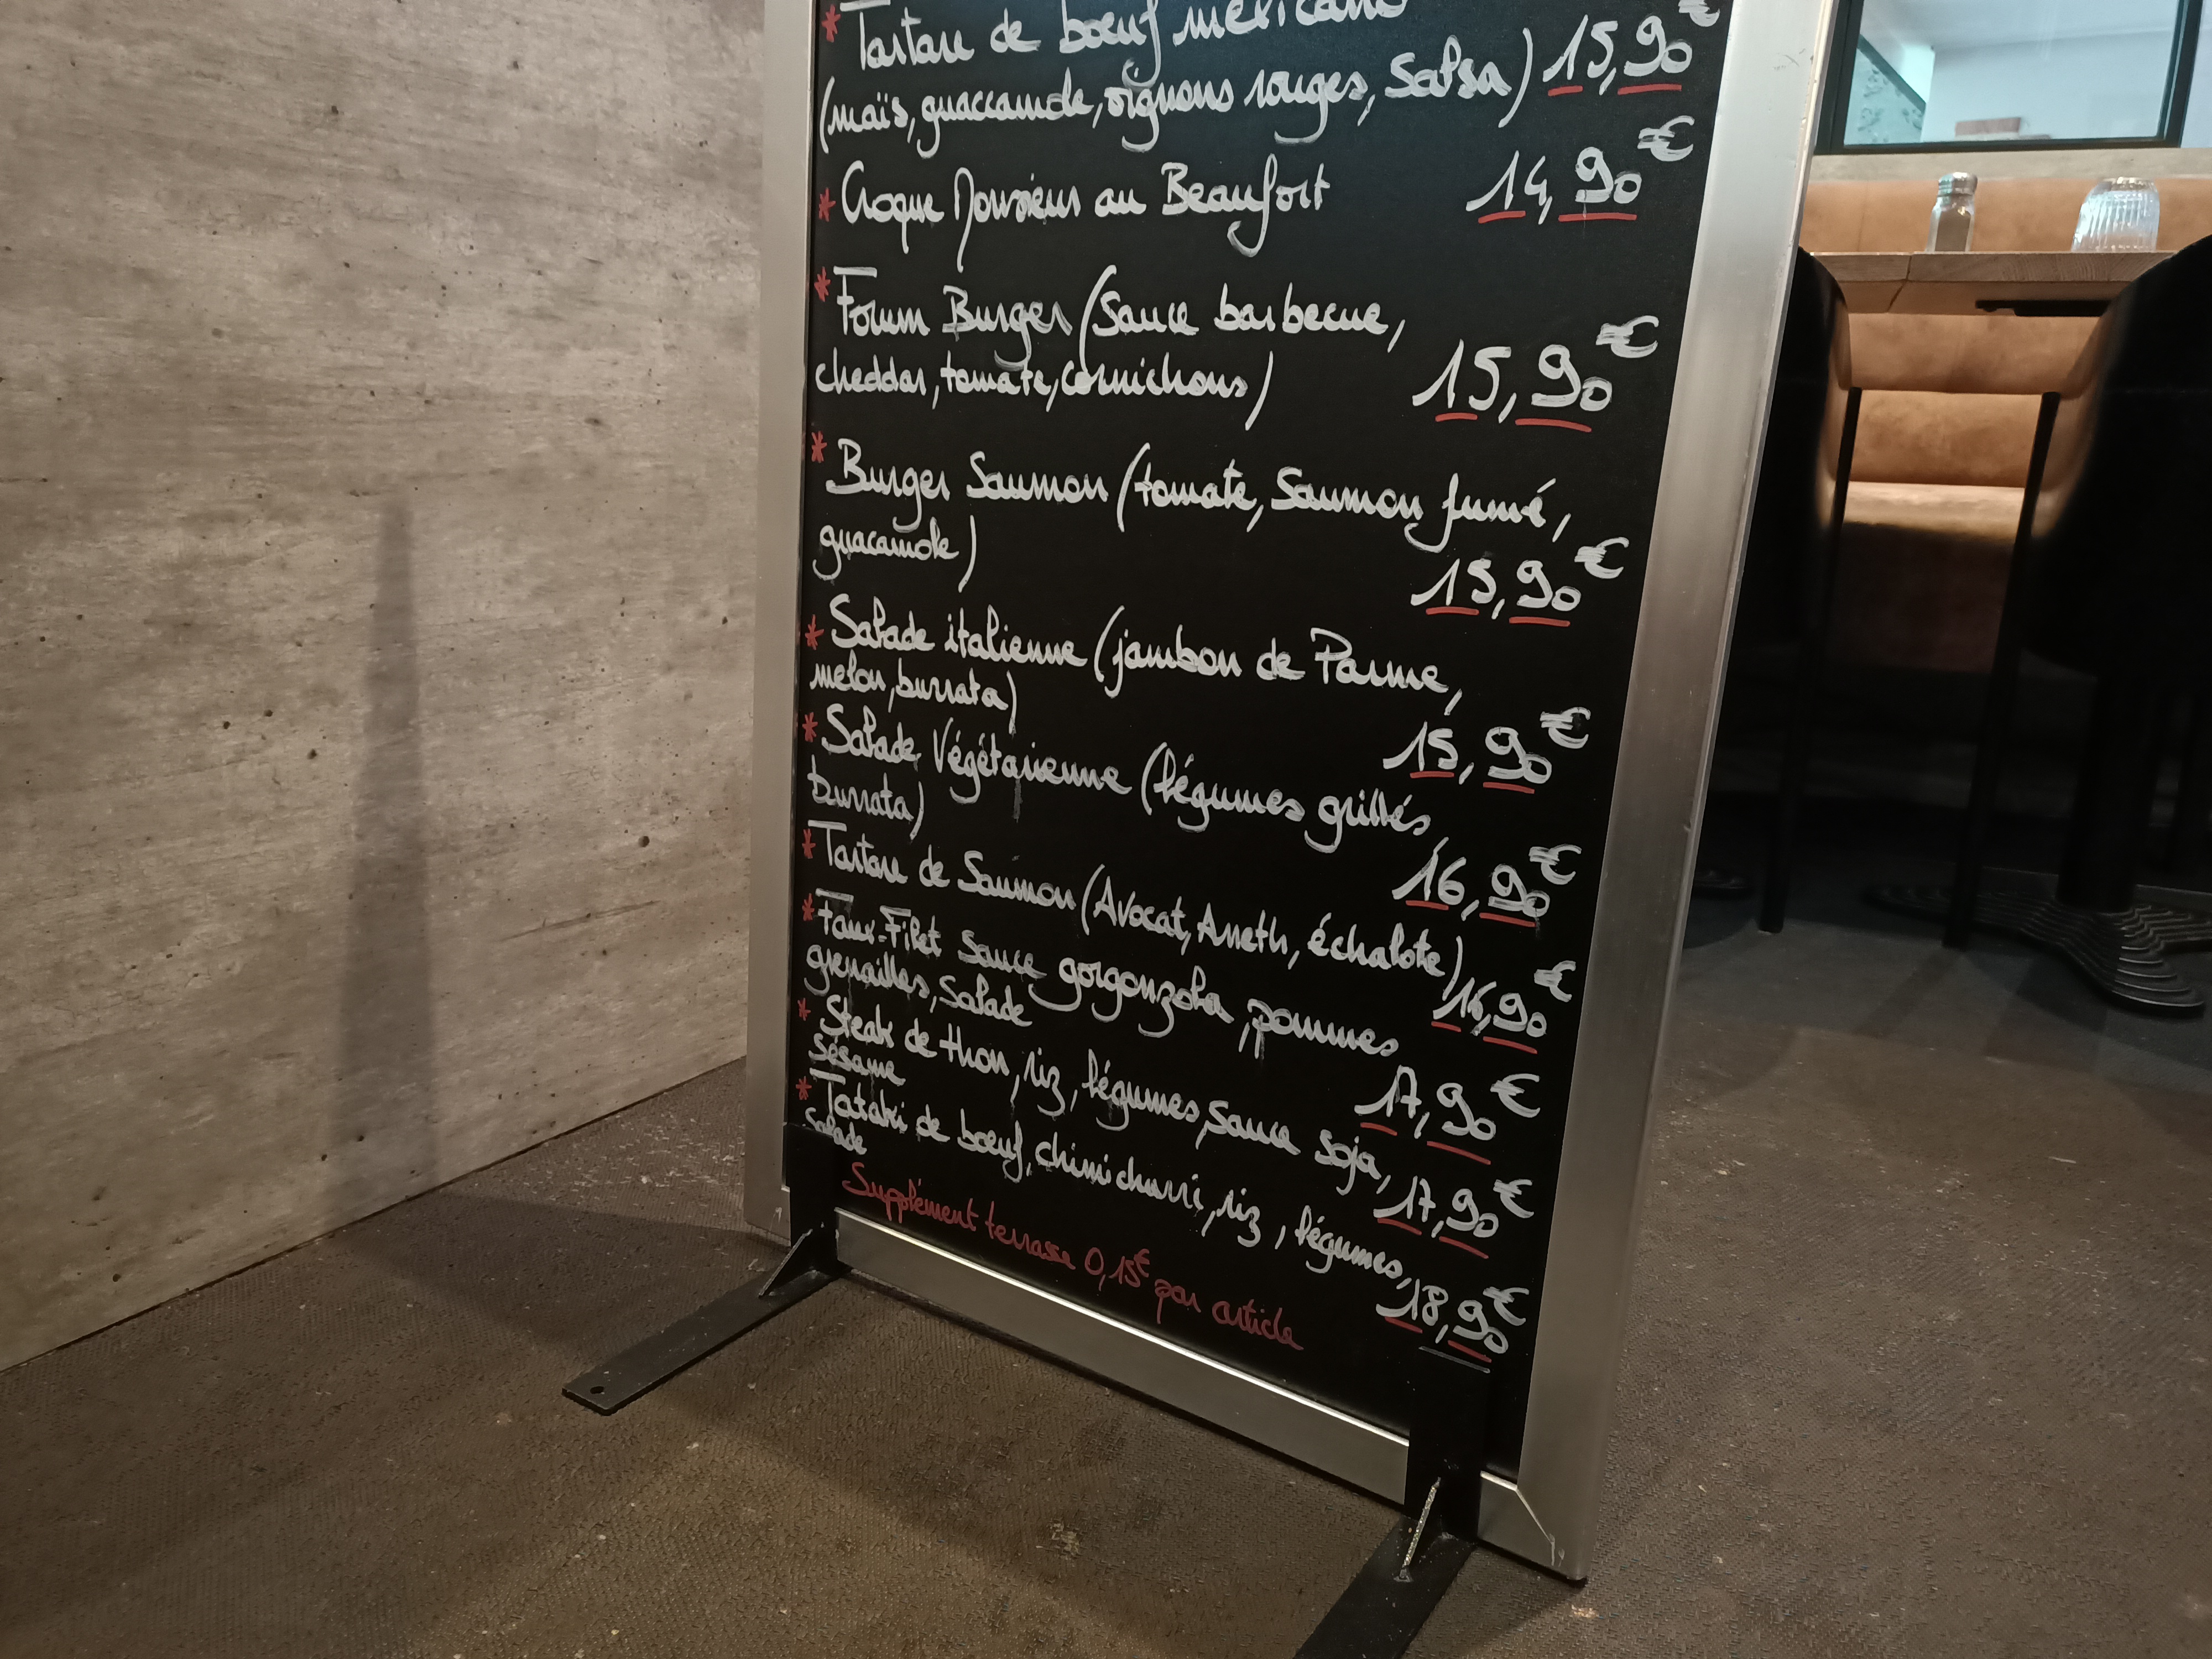 * Tartare de boeuf mexicano
(maïs, guaccamole, oignons rouges, Salsa) 15,90€
* Croque Monsieur au Beaufort 14,90€
* Forum Burger (Sauce barbecue,
cheddar, tomate, cornichons) 15,90€
* Burger Saumon (tomate, Saumon fumé,
guacamole) 15,90€
* Salade italienne (jambon de Parme,
melon, burrata) 15,90€
* Salade Végétarienne (légumes grillés,
burrata) 16,90€
* Tartare de Saumon (Avocat, Aneth, échalote) 16,90€
* Faux-Filet Sauce gorgonzola, pommes
grenailles, Salade 17,90€
* Steak de thon, riz, légumes, Sauce Soja,
Sésame 17,90€
* Tataki de bœuf, chimichurri, riz, légumes,
Salade 18,90€
Supplément terrasse 0,15€ par article